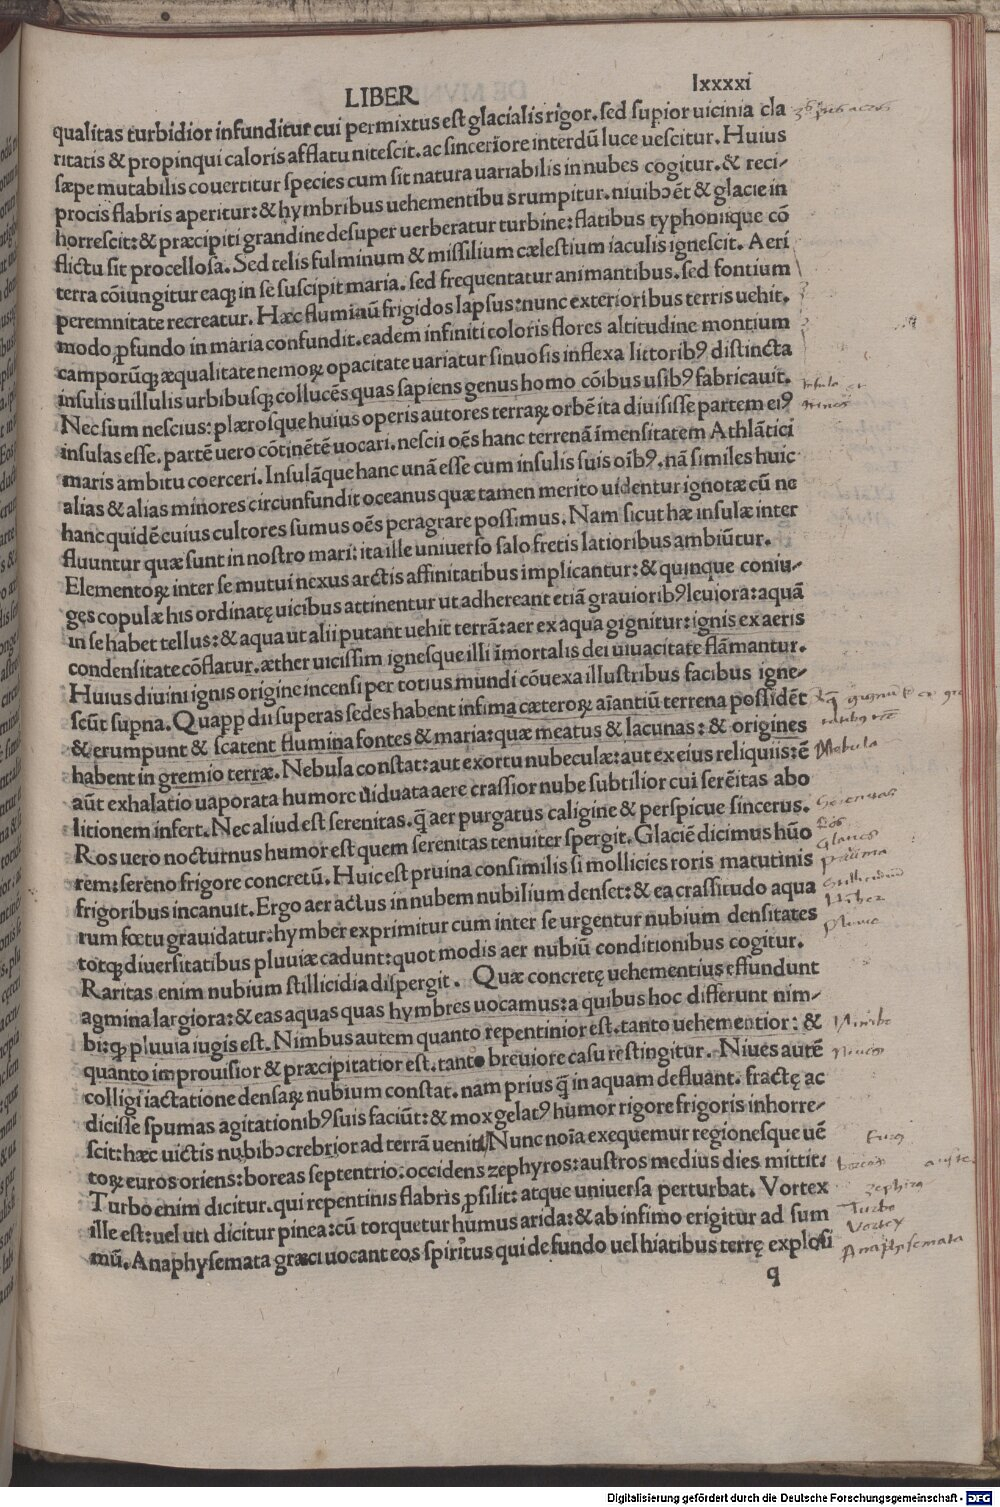 LIBER
lxxxxi
qualitas turbidior infunditur cui permixtus est glacialis rigor. sed supior uicinia cla
ritatis & propinqui caloris afflatu nitescit. ac sinceriore interdū luce uescitur. Huius
sæpe mutabilis couertitur species cum sit natura uariabilis in nubes cogitur. & reci-
procis flabris aperitur: & hymbribus uehementibu srumpitur. niuibↄ ēt & glacie in
horrescit: & præcipiti grandine desuper uerberatur turbine: flatibus typhoniique cō
flictu fit procellosa. Sed telis fulminum & missilium cælestium iaculis ignescit. Aeri
terra cōiungitur eaqꝫ in se suscipit maria. sed frequentatur animantibus. sed fontium
peremnitate recreatur. Hæc fluminū frigidos lapsus: nunc exterioribus terris uehit.
modo ꝓfundo in maria confundit. eadem infiniti coloris flores altitudine montium
camporūqꝫ æqualitate nemoꝝ opacitate uariatur sinuosis inflexa littoribꝰ distincta
insulis uillulis urbibusqꝫ collucēs quas sapiens genus homo cōibus usibꝰ fabricauit.
Nec sum nescius: plærosque huius operis autores terraꝝ orbē ita diuisisse partem eiꝰ
insulas esse. partē uero cōtinētē uocari. nescii oēs hanc terrenā īmensitatem Athlātici
maris ambitu coerceri. Insulāque hanc unā esse cum insulis suis oībꝰ. nā similes huic
alias & alias minores circunfundit oceanus quæ tamen merito uidentur ignotæ cū ne
hanc quidē cuius cultores sumus oēs peragrare possimus. Nam sicut hæ insulæ inter
fluuntur quæ sunt in nostro mari: ita ille uniuerso salo fretis latioribus ambiūtur.
Elementoꝝ inter se mutui nexus arctis affinitatibus implicantur: & quinque coniu-
gęs copulæ his ordinatę uicibus attinentur ut adhereant etiā grauioribꝰ leuiora: aquā
in se habet tellus: & aqua ut alii putant uehit terrā: aer ex aqua gignitur: ignis ex aeris
condensitate cōflatur. æther uicissim ignesque illi īmortalis dei uiuacitate flāmantur.
Huius diuini ignis origine incensi per totius mundi cōuexa illustribus facibus igne-
scūt suꝑna. Quapꝑ dii superas sedes habent infima cæteroꝝ aīantiū terrena possidēt
& erumpunt & scatent flumina fontes & maria: quæ meatus & lacunas: & origines
habent in gremio terræ. Nebula constat: aut exortu nubeculæ: aut ex eius reliquiis: ē
aūt exhalatio uaporata humore uiduata aere crassior nube subtilior cui serēitas abo
litionem infert. Nec aliud est serenitas. q̄ aer purgatus caligine & perspicue sincerus.
Ros uero nocturnus humor est quem serenitas tenuiter spergit. Glaciē dicimus hūo
rem: sereno frigore concretū. Huic est pruina consimilis si mollicies roris matutinis
frigoribus incanuit. Ergo aer actus in nubem nubilium denset: & ea crassitudo aqua
rum fœtu grauidatur: hymber exprimitur cum inter se urgentur nubium densitates
totqꝫ diuersitatibus pluuiæ cadunt: quot modis aer nubiū conditionibus cogitur.
Raritas enim nubium stillicidia dispergit. Quæ concretę uehementius effundunt
agmina largiora: & eas aquas quas hymbres uocamus: a quibus hoc differunt nim-
bi: qꝫ pluuia iugis est. Nimbus autem quanto repentinior est. tanto uehementior: &
quanto improuisior & præcipitatior est. tanto breuiore casu restingitur. Niues autē
colligi iactatione densaꝝ nubium constat. nam prius q̄ in aquam defluant. fractę ac
dicisse spumas agitationibꝰ suis faciūt: & mox gelatꝰ humor rigore frigoris inhorre-
scit: hæc uictis nubibↄ crebrior ad terrā uenit. Nunc noīa exequemur regionesque uē
toꝝ euros oriens: boreas septentrio: occidens zephyros: austros medius dies mittit:
Turbo enim dicitur. qui repentinis flabris ꝓsilit: atque uniuersa perturbat. Vortex
ille est: uel uti dicitur pinea: cū torquetur humus arida: & ab infimo erigitur ad sum
mū. Anaphysemata græci uocant eos spiritus qui de fundo uel hiatibus terrę explosi
q
Nebula
Serenitas
Ros
Glacies
pruina
Nimbi
Niues
Eurus
boreas
Turbo
Vortex
Anaphysemata
Digitalisierung gefördert durch die Deutsche Forschungsgemeinschaft - DFG